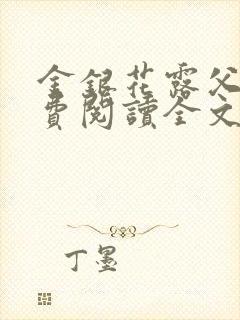 金銀花露父
費閱讀全文
丁墨